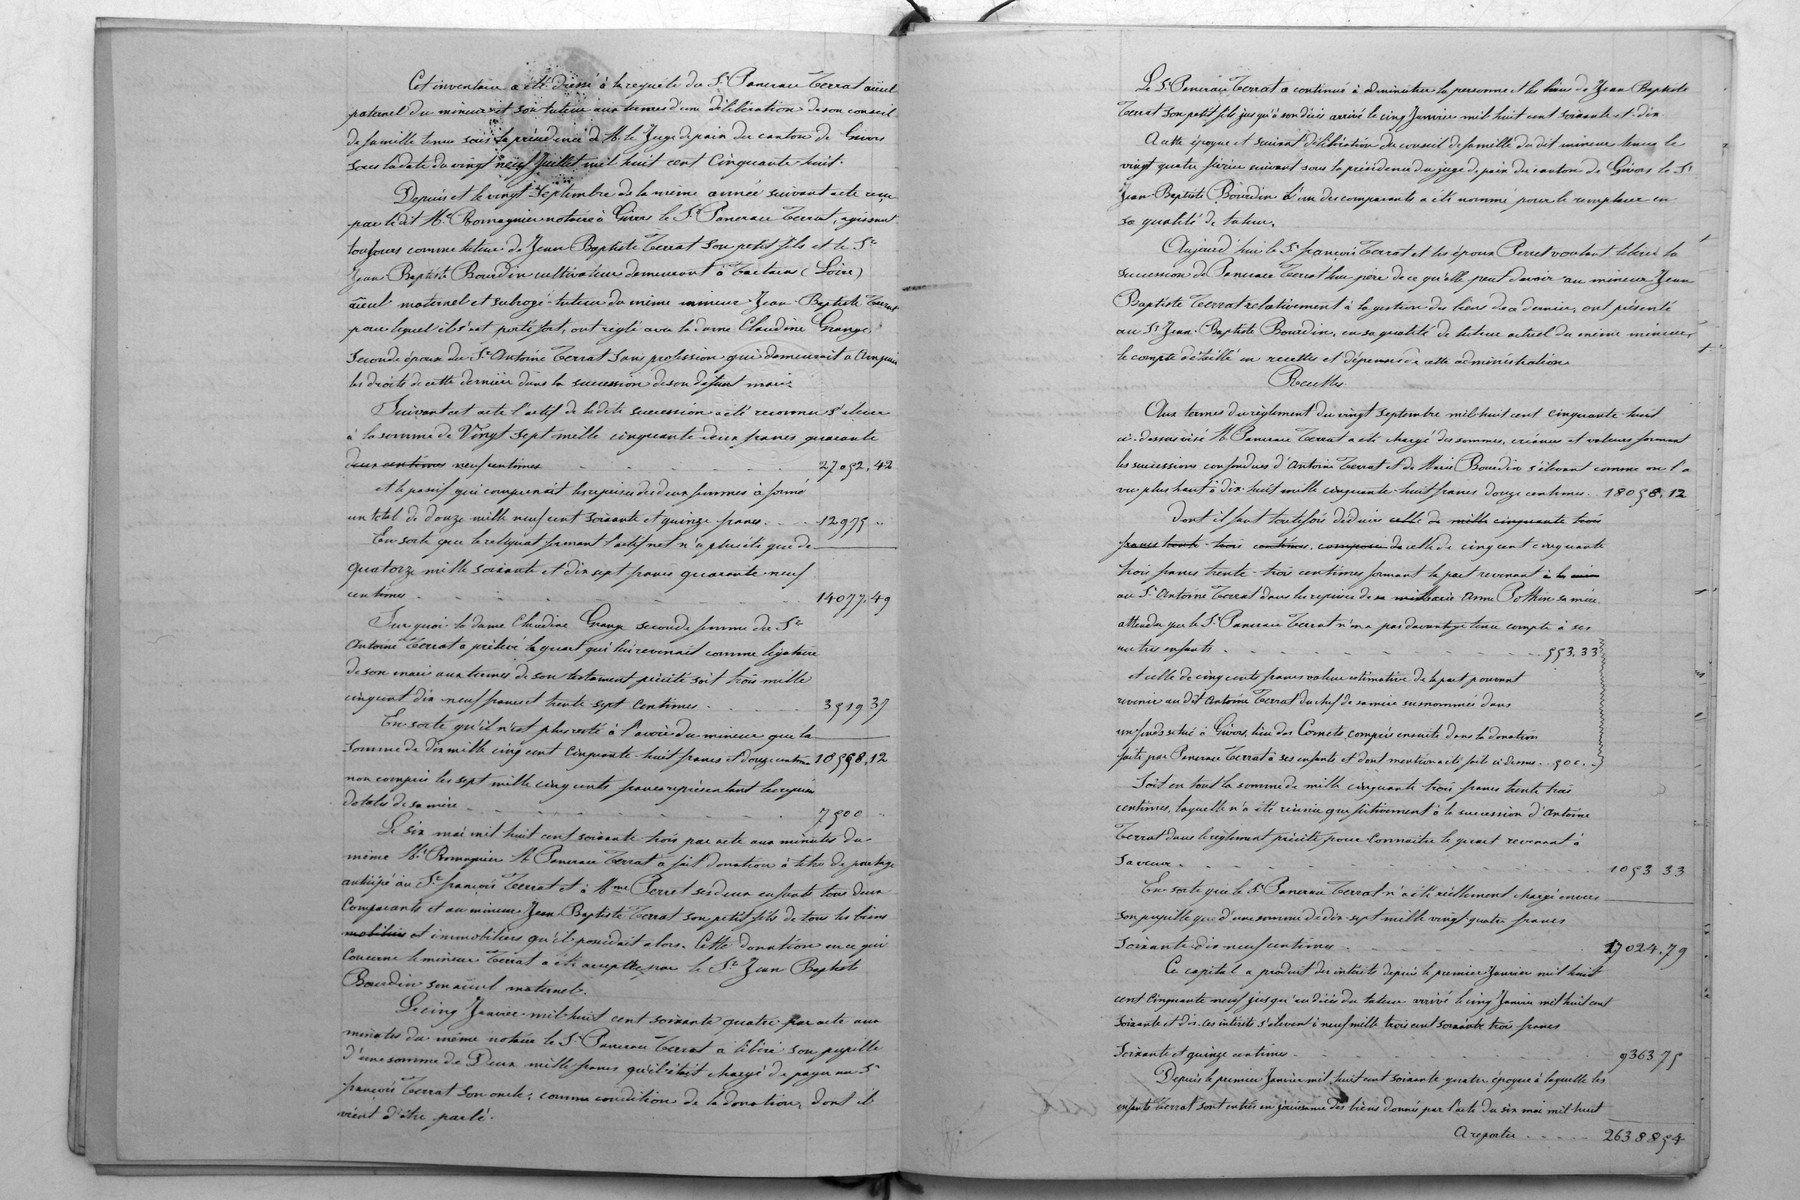 Cet inventaire a été dressé à la requête du Sr Pancrace Terrat aïeul
paternel du mineur et son tuteur aux termes d'une délibération de son conseil
de famille tenu sous la présidence de Mr le Juge de paix du canton de Givors
sous la date du vingt neuf Juillet mil huit cent cinquante huit.
Depuis et le vingt Septembre de la même année suivant acte reçu
par le dit Me Romagnier notaire à Givors le Sr Pancrace Terrat, agissant
toujours comme tuteur de Jean Baptiste Terrat son petit fils et le Sr
Jean Baptiste Bourdin cultivateur demeurant à Tartaras (Loire)
aïeul maternel et subrogé-tuteur du même mineur Jean Baptiste Terrat
pour lequel ils s'est porté fort, ont réglé avec la dame Claudine Grange,
seconde épouse du Sr Antoine Terrat sans profession qui demeurait à Ampuis
les droits de cette dernière dans la succession de son défunt mari.
Suivant cet acte l'actif de la dite succession a été reconnu s'élever
à la somme de Vingt sept mille cinquante deux francs quarante
deux centimes neuf centimes 27052,42
et le passif qui comprenait les reprises des deux femmes à formé
un total de douze mille neuf cent soixante et quinze francs 12975 "
En sorte que le reliquat formant l'actif net n'a plus été que de
quatorze mille soixante et dix sept francs quarante neuf
centimes 14077,49
Sur quoi la dame Claudine Grange seconde femme du Sr
Antoine Terrat a prélevé le quart qui lui revenait comme légataire
de son mari aux termes de son testament précité soit trois mille
cinq cent dix neuf francs et trente sept centimes 3519 37
En sorte qu'il n'est plus resté à l'avoir du mineur que la
somme de dix mille cinq cent cinquante-huit francs et douze centimes 10558,12
non compris les sept mille cinq cents francs représentant les reprises
dotales de sa mère 7500 "
Le six mai mil huit cent soixante trois par acte aux minutes du
même Me Romagnier Mr Pancrace Terrat a fait donation à titre de partage
anticipé au Sr françois Terrat et à Mme Perret ses deux enfants tous deux
Comparants et au mineur Jean Baptiste Terrat son petit fils de tous les biens
mobiliers et immobiliers qu'il possédait alors. Cette donation en ce qui
Concerne le mineur Terrat a été acceptée par le Sr Jean Baptiste
Bourdin son aïeul maternel.
Le cinq Janvier mil huit cent soixante quatre par acte aux
minutes du même notaire le Sr Pancrace Terrat a libéré son pupille
d'une somme de Deux mille francs qu'il était chargé de payer au Sr
françois Terrat son oncle, comme condition de la donation, dont il
vient d'être parlé.
Le Sr Pancrace Terrat a continué à administrer la personne et les biens de Jean Baptiste
Terrat son petit fils jusqu'à son décès arrivé le cinq Janvier mil huit cent soixante et dix.
A cette époque et suivant délibération du conseil de famille du dit mineur tenu le
vingt quatre février suivant sous la présidence du juge de paix du canton de Givors le Sr
Jean Baptiste Bourdin l'un des comparants a été nommé pour le remplacer en
sa qualité de tuteur.
Aujourd'hui le Sr françois Terrat et les époux Perret voulant libérer la
succession de Pancrace Terrat leur père de ce qu'elle peut devoir au mineur Jean
Baptiste Terrat relativement à la gestion des biens de ce dernier, ont présenté
au Sr Jean-Baptiste Bourdin, en sa qualité de tuteur actuel du même mineur
le compte détaillé en recettes et dépenses de cette administration
Recettes
Aux termes du règlement du vingt septembre mil huit cent cinquante huit
ci-dessus visé Mr Pancrace Terrat a été chargé des sommes, créances et valeurs formant
les successions confondues d'Antoine Terrat et de Marie Bourdin s'élevant comme on l'a
vu plus haut à dix huit mille cinquante huit francs douze centimes 18058,12
Dont il faut toutefois déduire celle de mille cinquante trois
francs trente-trois centimes, composée de celle de cinq cent cinquante
trois francs trente-trois centimes formant la part revenant
au Sr Antoine Terrat dans les reprises de Anne Pothin sa mère
attendu que le Sr Pancrace Terrat n'en a pas davantage tenu compte à ses
autres enfants 553,33
et celle de cinq cents francs valeur estimative de la part pouvant
revenir au dit Antoine Terrat du chef de sa mère susnommée dans
un fonds situé à Givors, lieu des Cornets, compris ensuite dans la donation
faite par Pancrace Terrat à ses enfants et dont mention a été faite ci dessus 500 "
Soit en tout la somme de mille cinquante trois francs trente trois
centimes, laquelle n'a été réunie que fictivement à la succession d'Antoine
Terrat dans le règlement précité pour connaître le quart revenant à
sa veuve 1053 33
En sorte que le Sr Pancrace Terrat n'a été réellement chargé envers
son pupille que d'une somme de dix-sept mille vingt quatre francs
soixante dix neuf centimes 17024,79
Ce capital a produit des intérêts depuis le premier Janvier mil huit
cent cinquante neuf jusqu'au décès du tuteur arrivé le cinq Janvier mil huit cent
soixante et dix. Ces intérêts s'élèvent à neuf mille trois cent soixante trois francs
soixante et quinze centimes 9363 75
Depuis le premier Janvier mil huit cent soixante quatre époque à laquelle les
enfants Terrat sont entrés en jouissance des biens donnés par l'acte du six mai mil huit
A reporter 26388 54